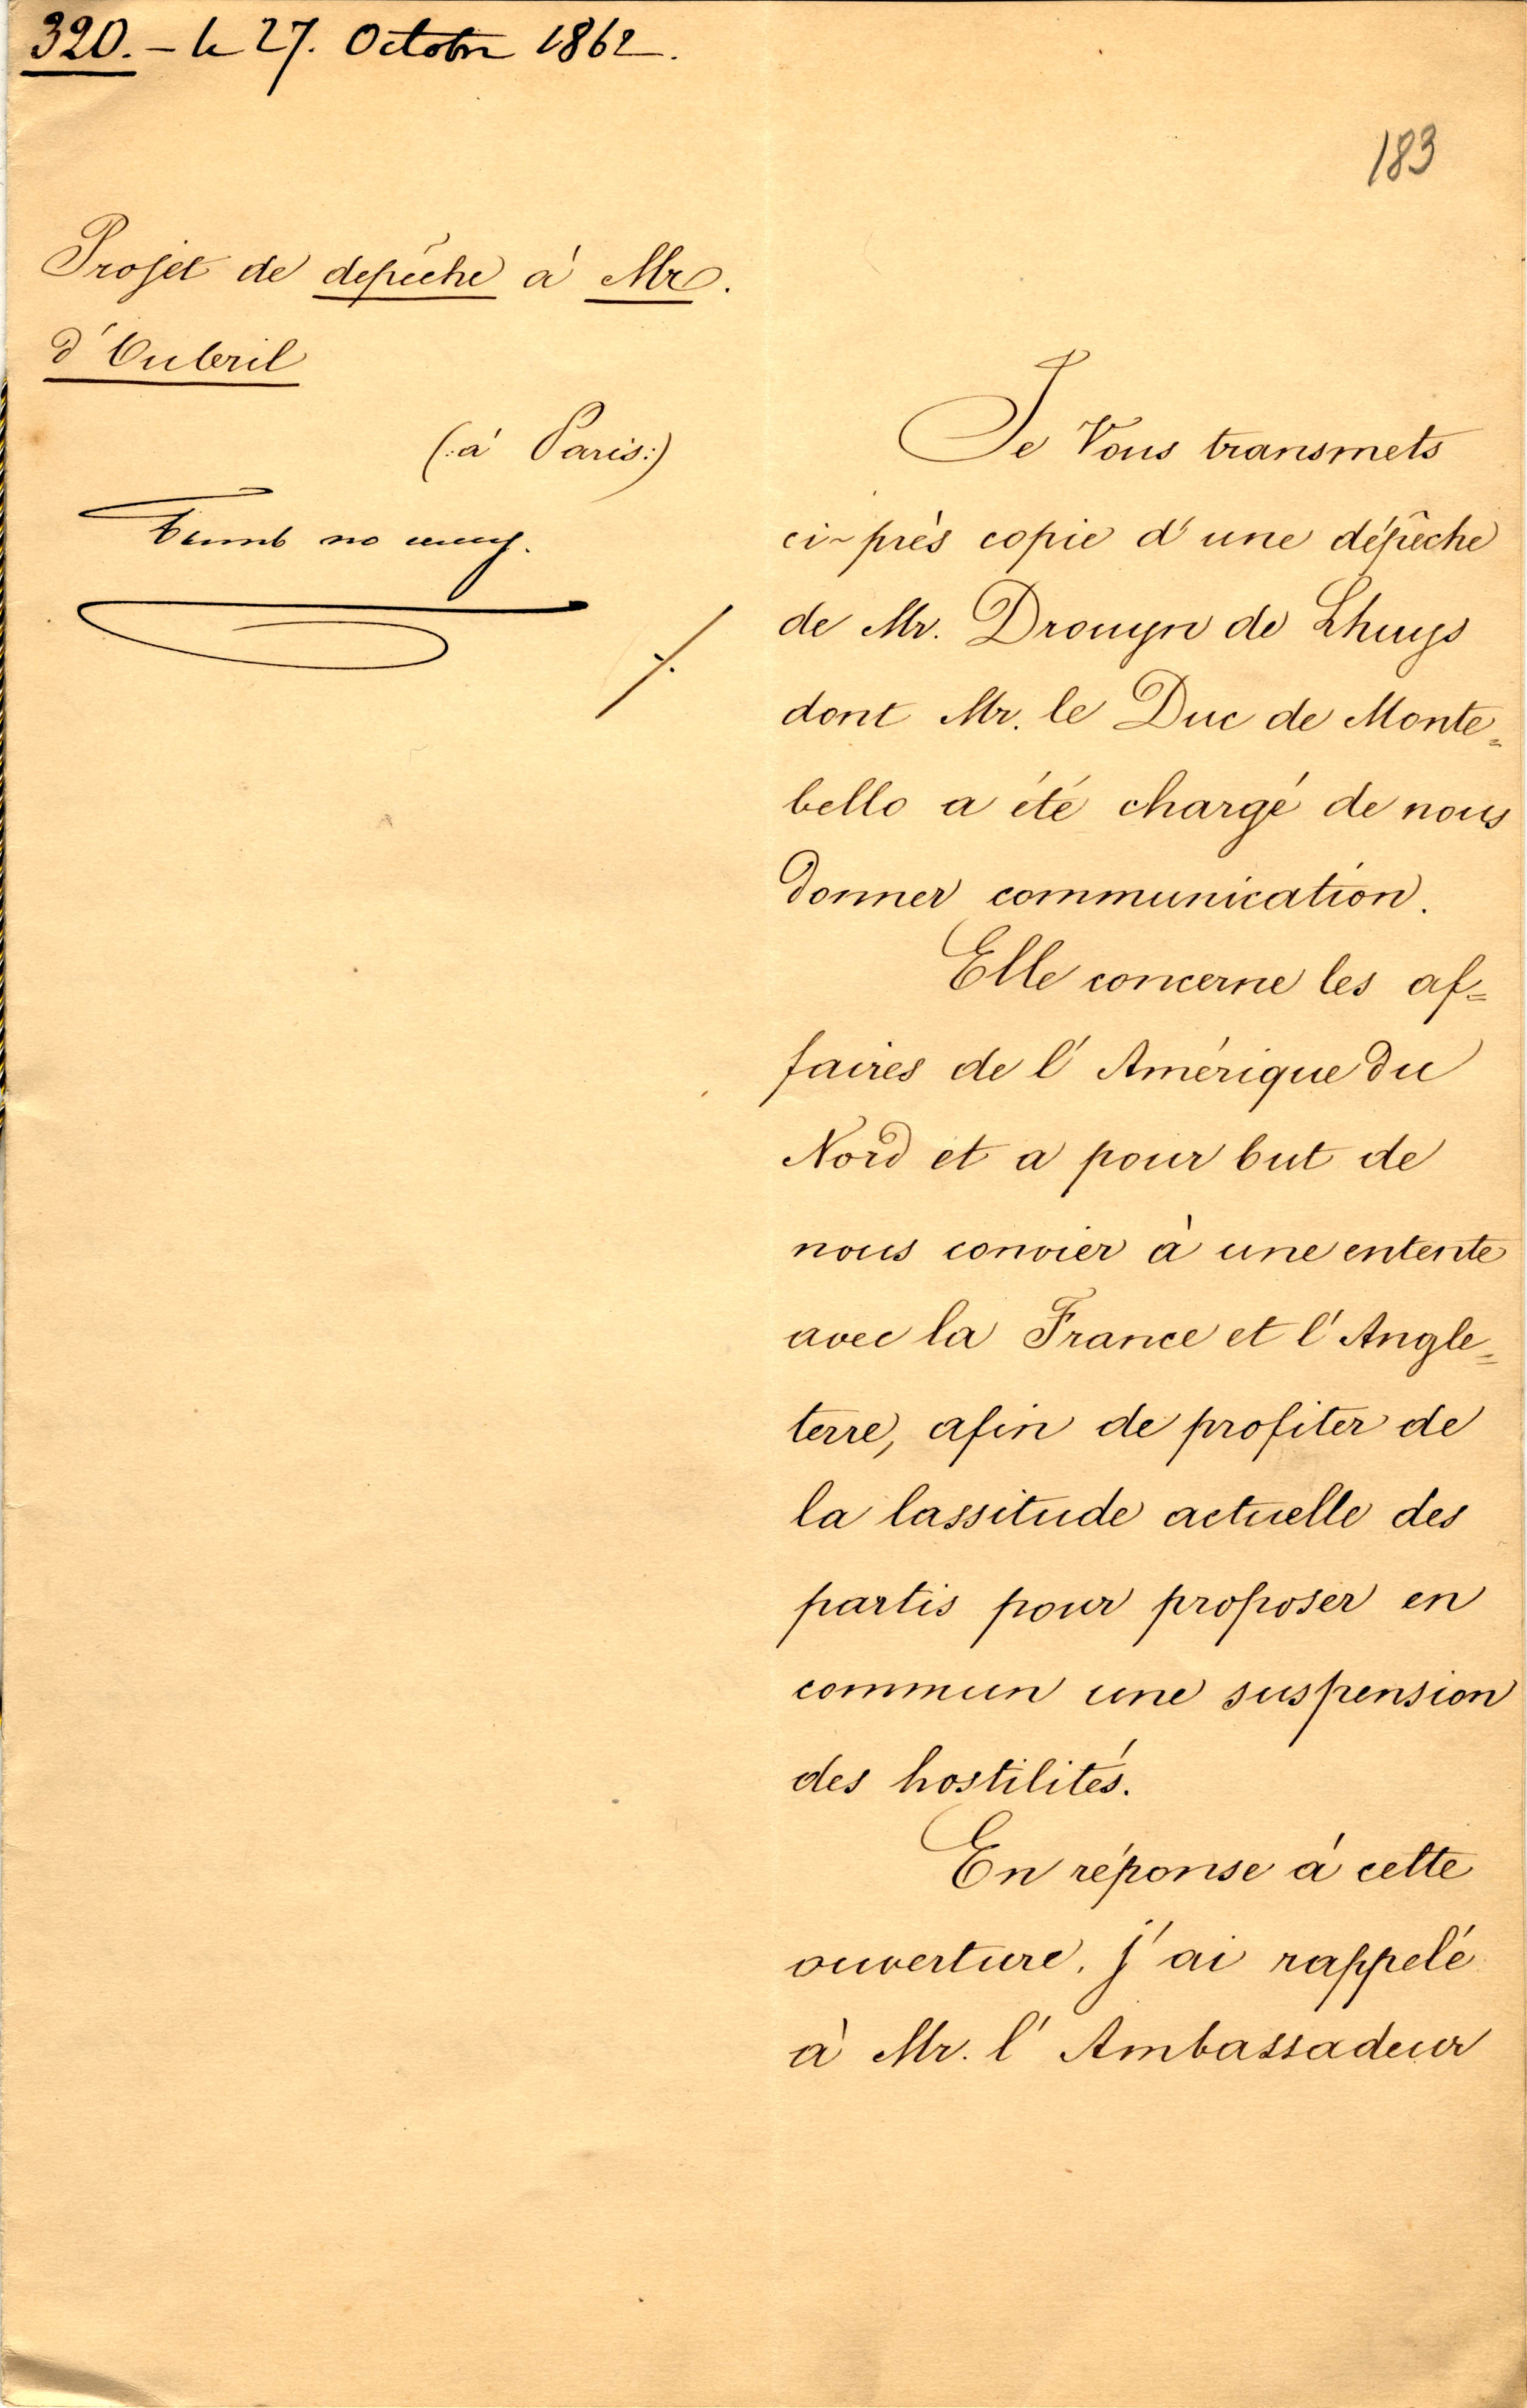 320. – le 27. Octobre 1862.
183
Projet de depêche à Mr.
d'Oubril
(: à Paris :)
Je Vous transmets
ci-près copie d'une dépêche
de Mr. Drouyn de Lhuys
dont Mr. le Duc de Monte=
bello a été chargé de nous
donner communication.
Elle concerne les af=
faires de l'Amérique du
Nord et a pour but de
nous convier à une entente
avec la France et l'Angle=
terre, afin de profiter de
la lassitude actuelle des
partis pour proposer en
commun une suspension
des hostilités.
En réponse à cette
ouverture, j'ai rappelé
à Mr. l'Ambassadeur